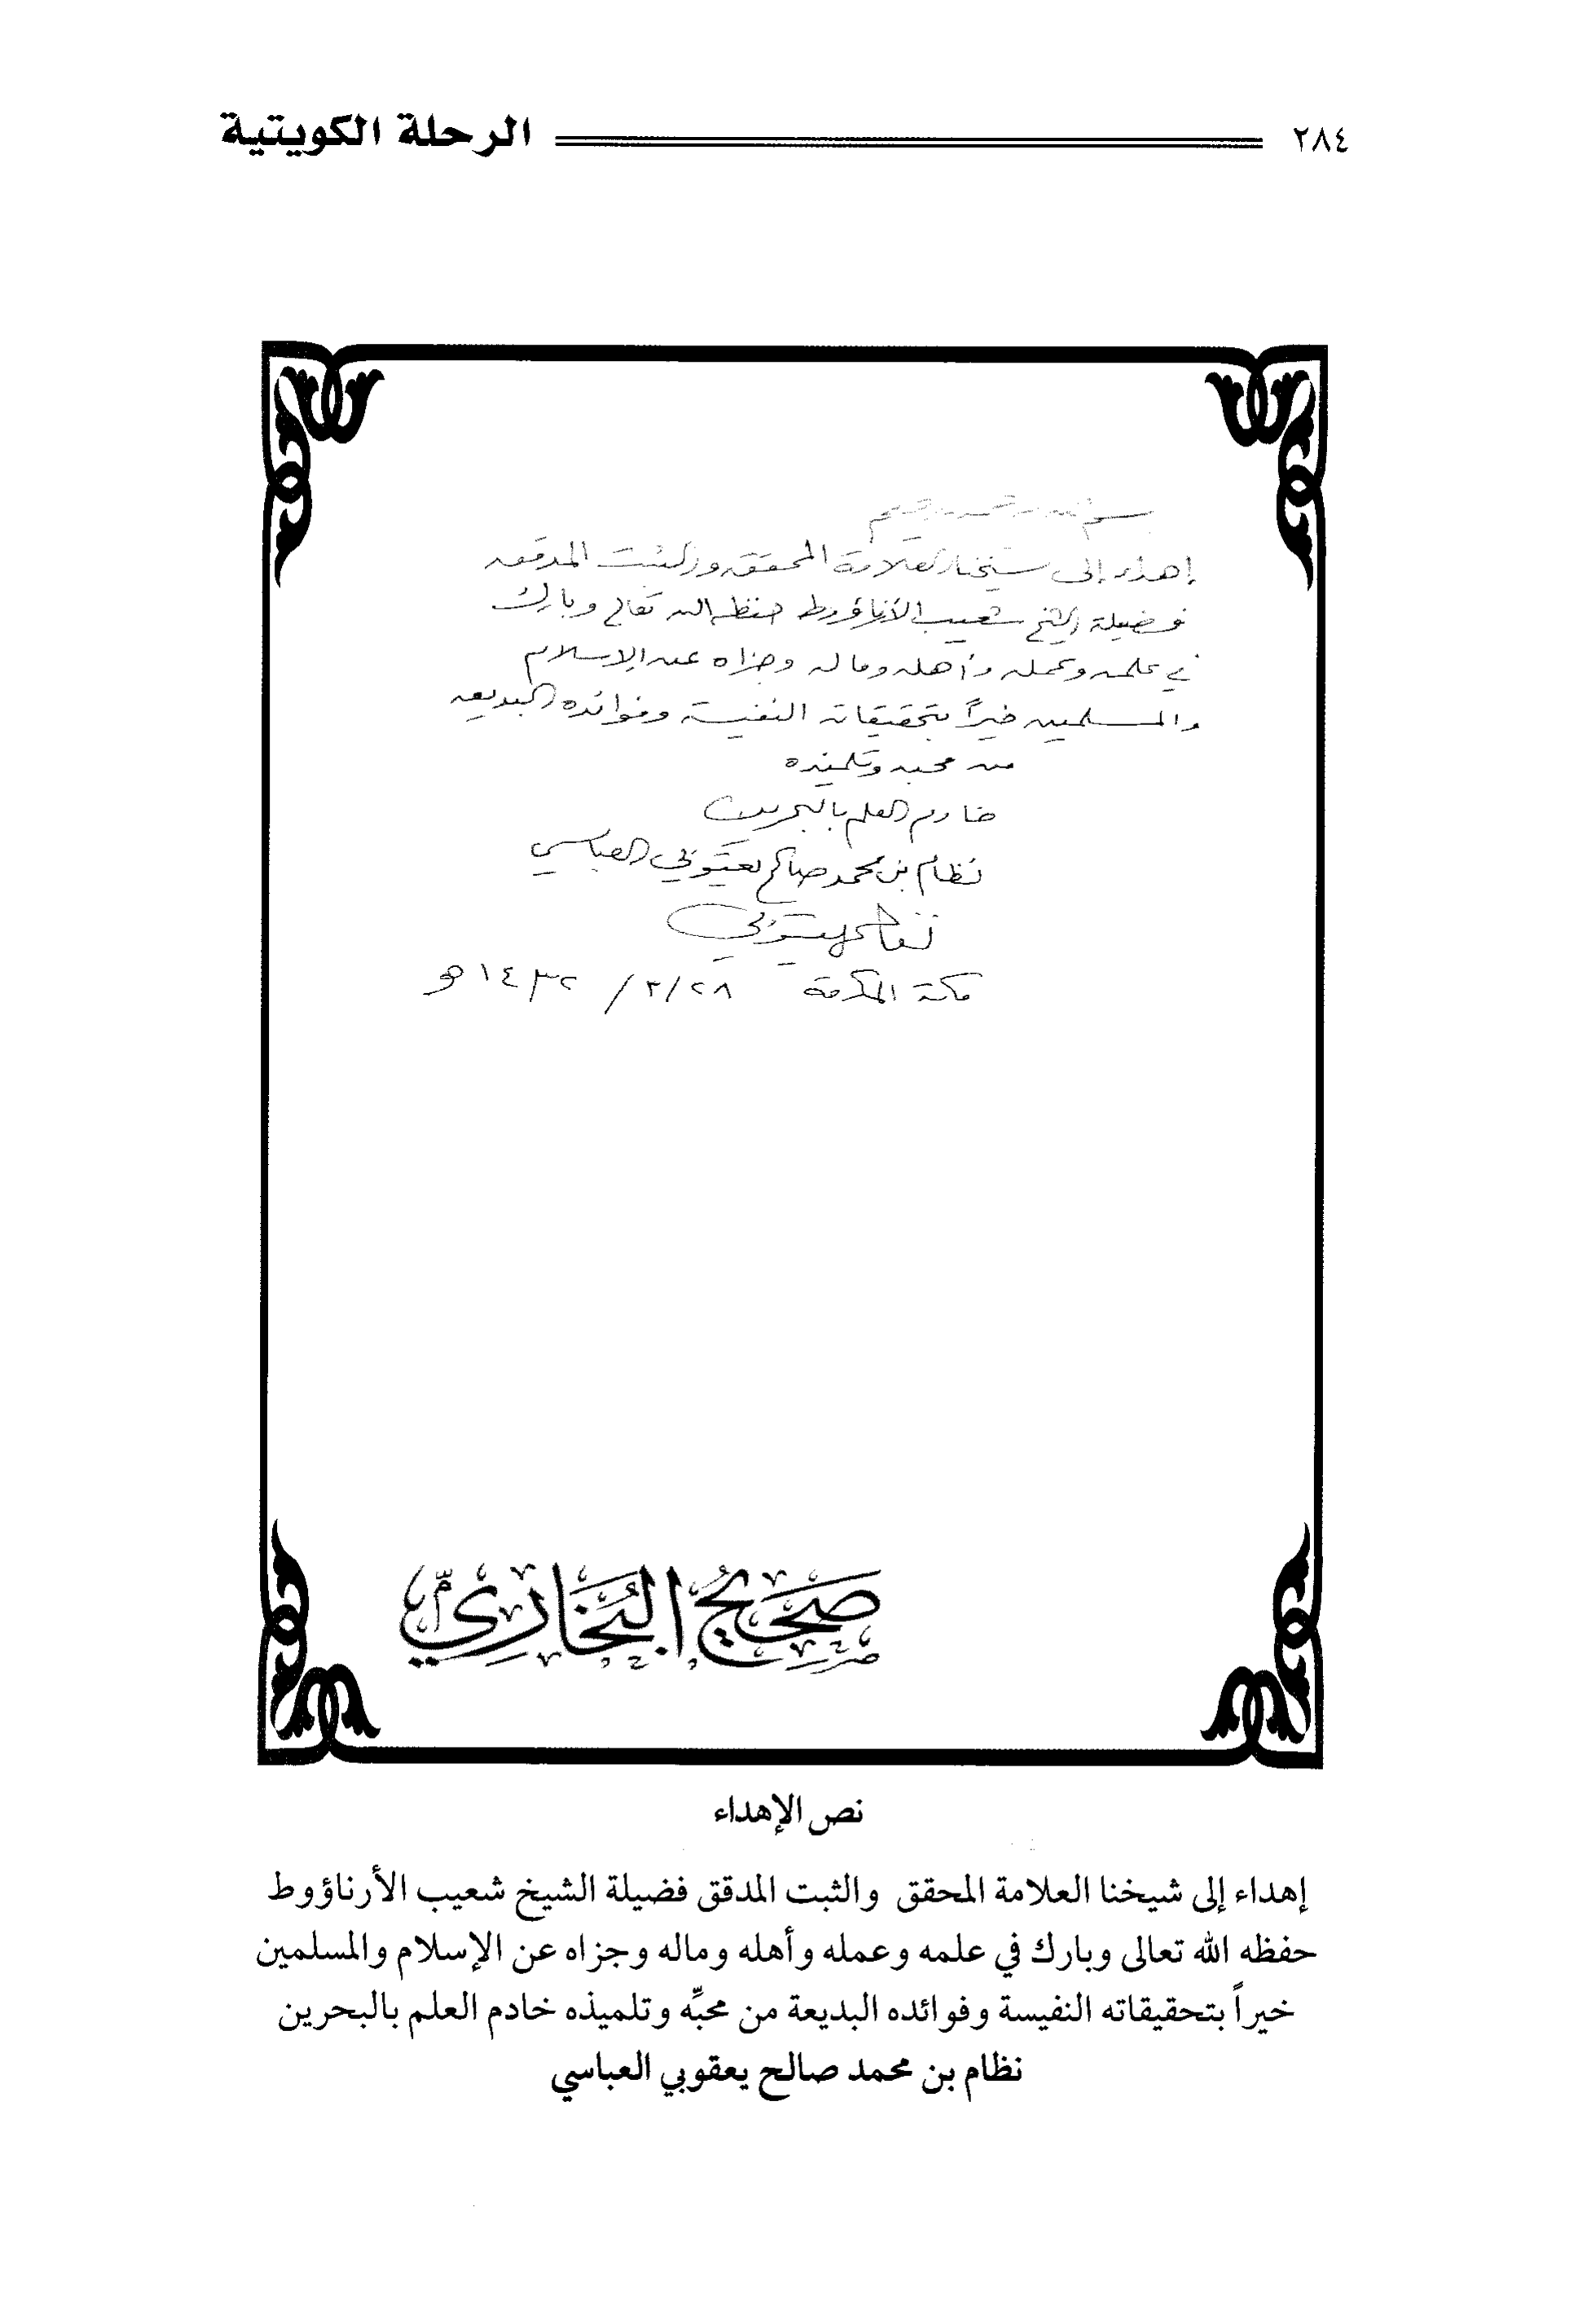 ٢٨٤ الرحلة الكويتية
بسم الله الرحمن الرحيم
إهداء إلى شيخنا العلامة المحقق والثبت المدقق
فضيلة الشيخ شعيب الأرناؤوط حفظه الله تعالى وبارك
في علمه وعمله وأهله وماله وجزاه عن الإسلام
والمسلمين خيراً بتحقيقاته النفيسة وفوائده البديعة
من محبه وتلميذه
خادم العلم بالبحرين
نظام بن محمد صالح يعقوبي العباسي
نظام يعقوبي
مكة المكرمة ٢٨/٣/١٤٣٢هـ
صحيح البخاري
نص الإهداء
إهداء إلى شيخنا العلامة المحقق والثبت المدقق فضيلة الشيخ شعيب الأرناؤوط
حفظه الله تعالى وبارك في علمه وعمله وأهله وماله وجزاه عن الإسلام والمسلمين
خيراً بتحقيقاته النفيسة وفوائده البديعة من محبِّه وتلميذه خادم العلم بالبحرين
نظام بن محمد صالح يعقوبي العباسي